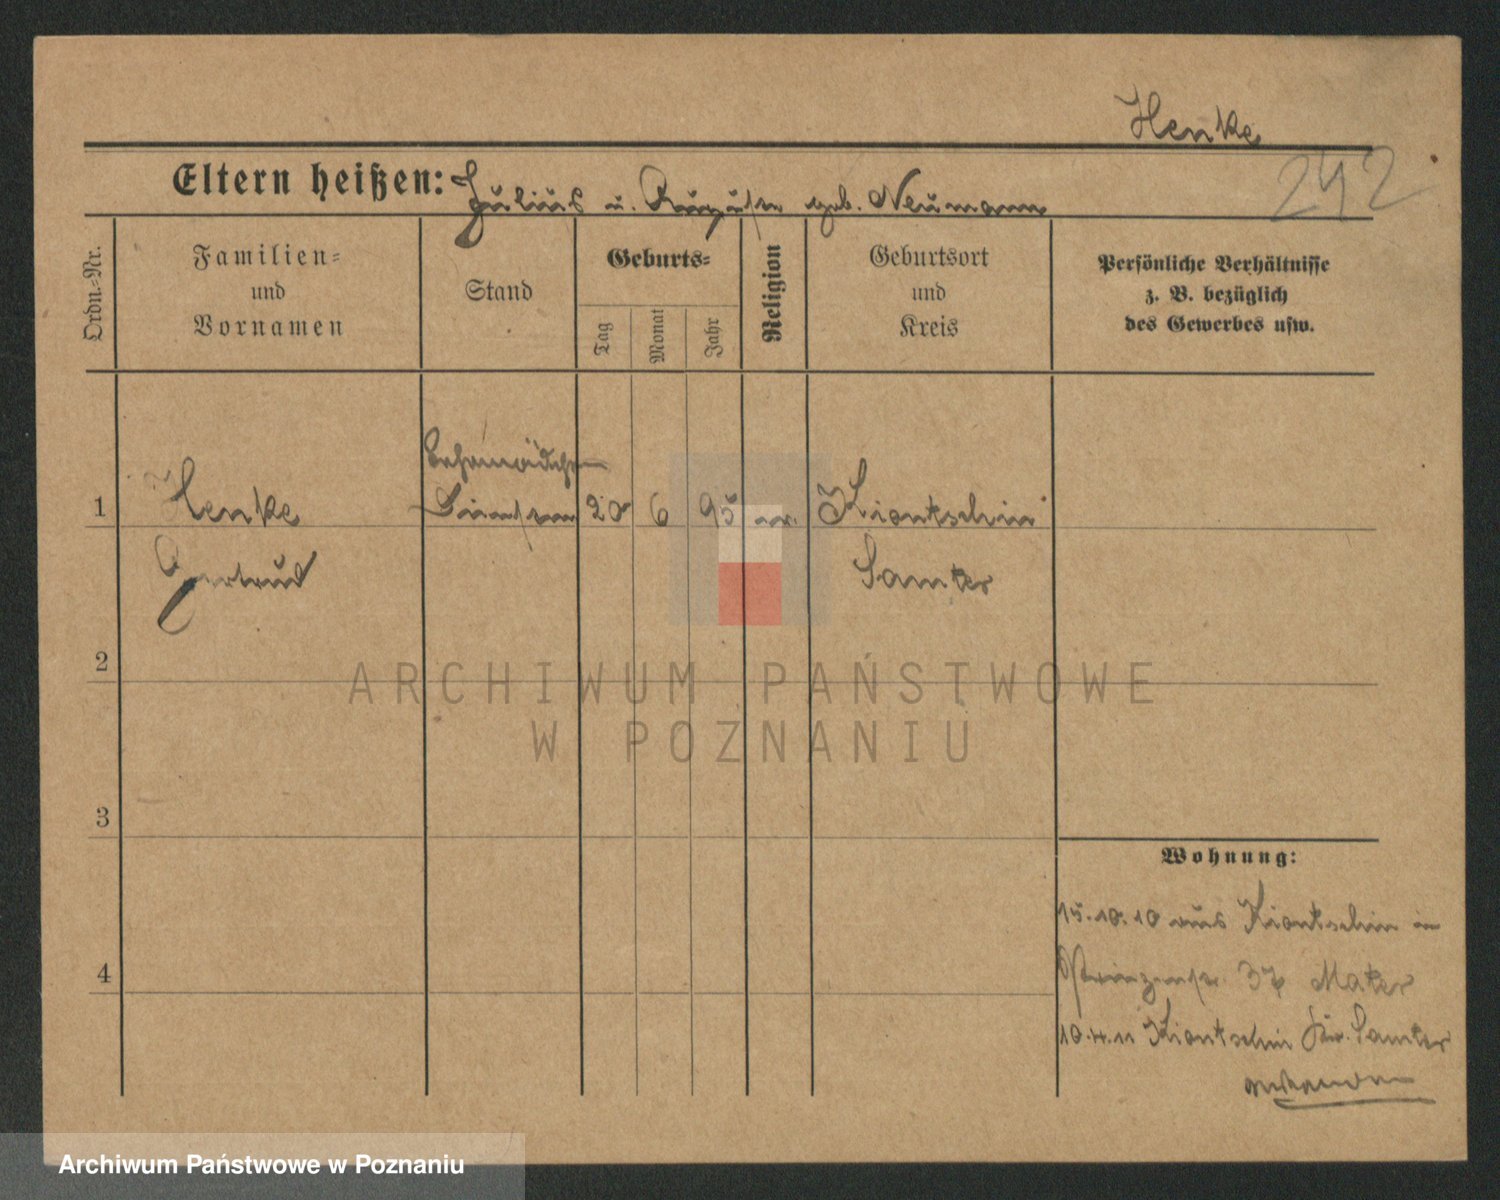 Henke
242
Eltern heißen: Julius u. Auguste geb. Neumann
Ordn.-Nr.
Familien-
und
Vornamen
Stand
Geburts-
Tag
Monat
Jahr
Religion
Geburtsort
und
Kreis
Persönliche Verhältnisse
z. B. bezüglich
des Gewerbes usw.
Lehrmädchen
1 Henke 20 6 95 ev. Kiontschin
Gertrud Samter
2
3
4
Wohnung:
15.10.10 aus Kiontschin in
37 Mater
10.4.11 Kiontschin Kr. Samter
ARCHIWUM PAŃSTWOWE
W POZNANIU
Archiwum Państwowe w Poznaniu